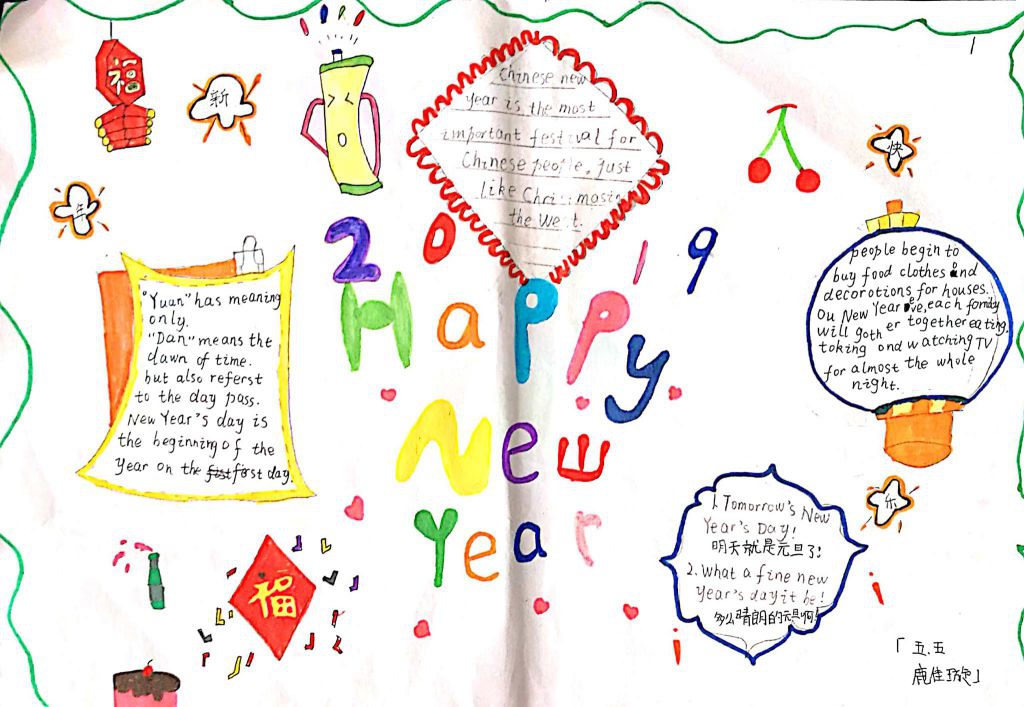 福
新
年
快
乐
Chinese new
year is the most
important festival for
Chinese people, just
like Christmas in
the West.
2019
Happy
New
Year
"Yuan" has meaning
only.
"Dan" means the
dawn of time.
but also referst
to the day pass.
New Year's day is
the beginning of the
Year on the first day.
people begin to
buy food clothes and
decorotions for houses.
On New Year eve, each family
will goth er together eating,
toking ond watching TV
for almost the whole
night.
1. Tomorrow's New
Year's Day!
明天就是元旦了!
2. What a fine new
Year's day it be!
多么晴朗的元旦啊!
福
「五.五
鹿佳璇」